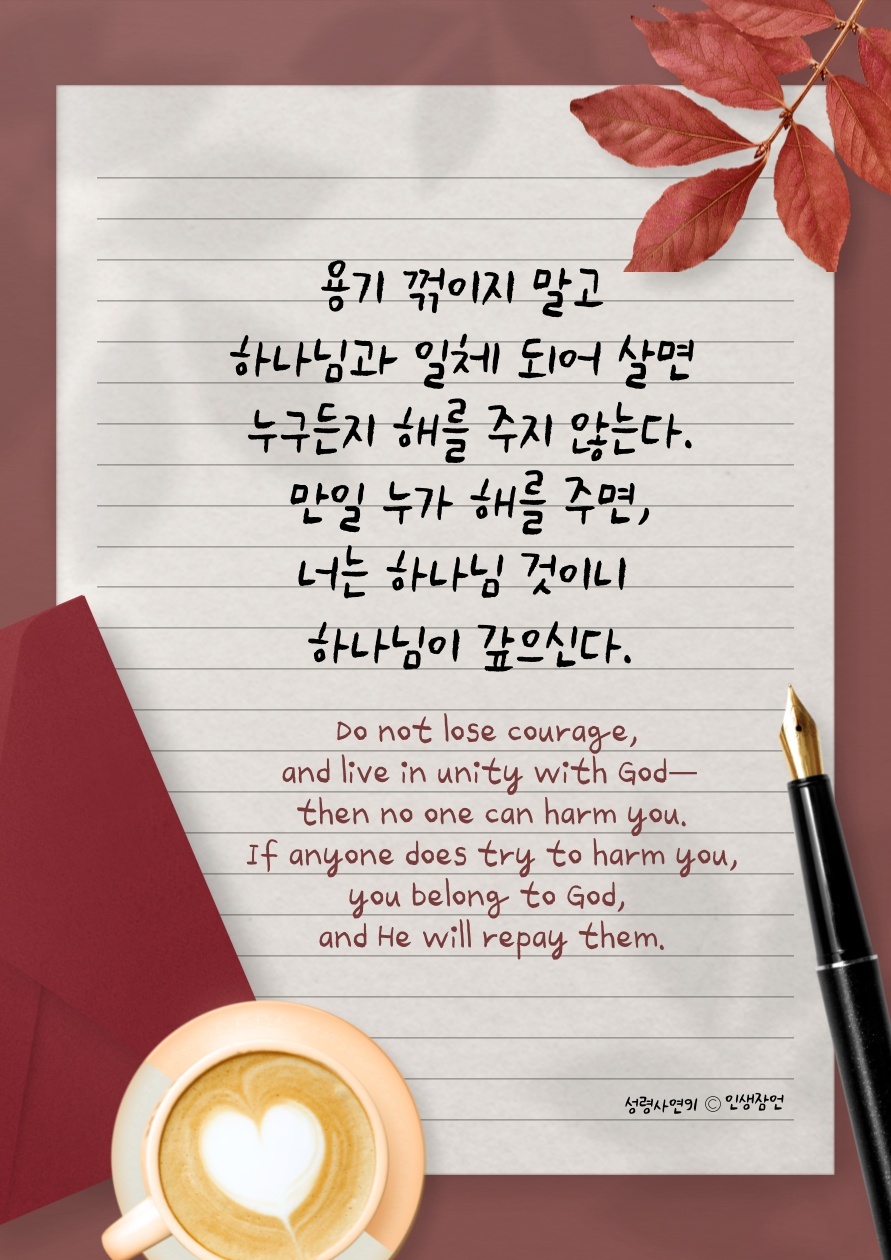 용기 꺾이지 말고
하나님과 일체 되어 살면
누구든지 해를 주지 않는다.
만일 누가 해를 주면,
너는 하나님 것이니
하나님이 갚으신다.
Do not lose courage,
and live in unity with God—
then no one can harm you.
If anyone does try to harm you,
you belong to God,
and He will repay them.
성령사연위 © 인생잠언